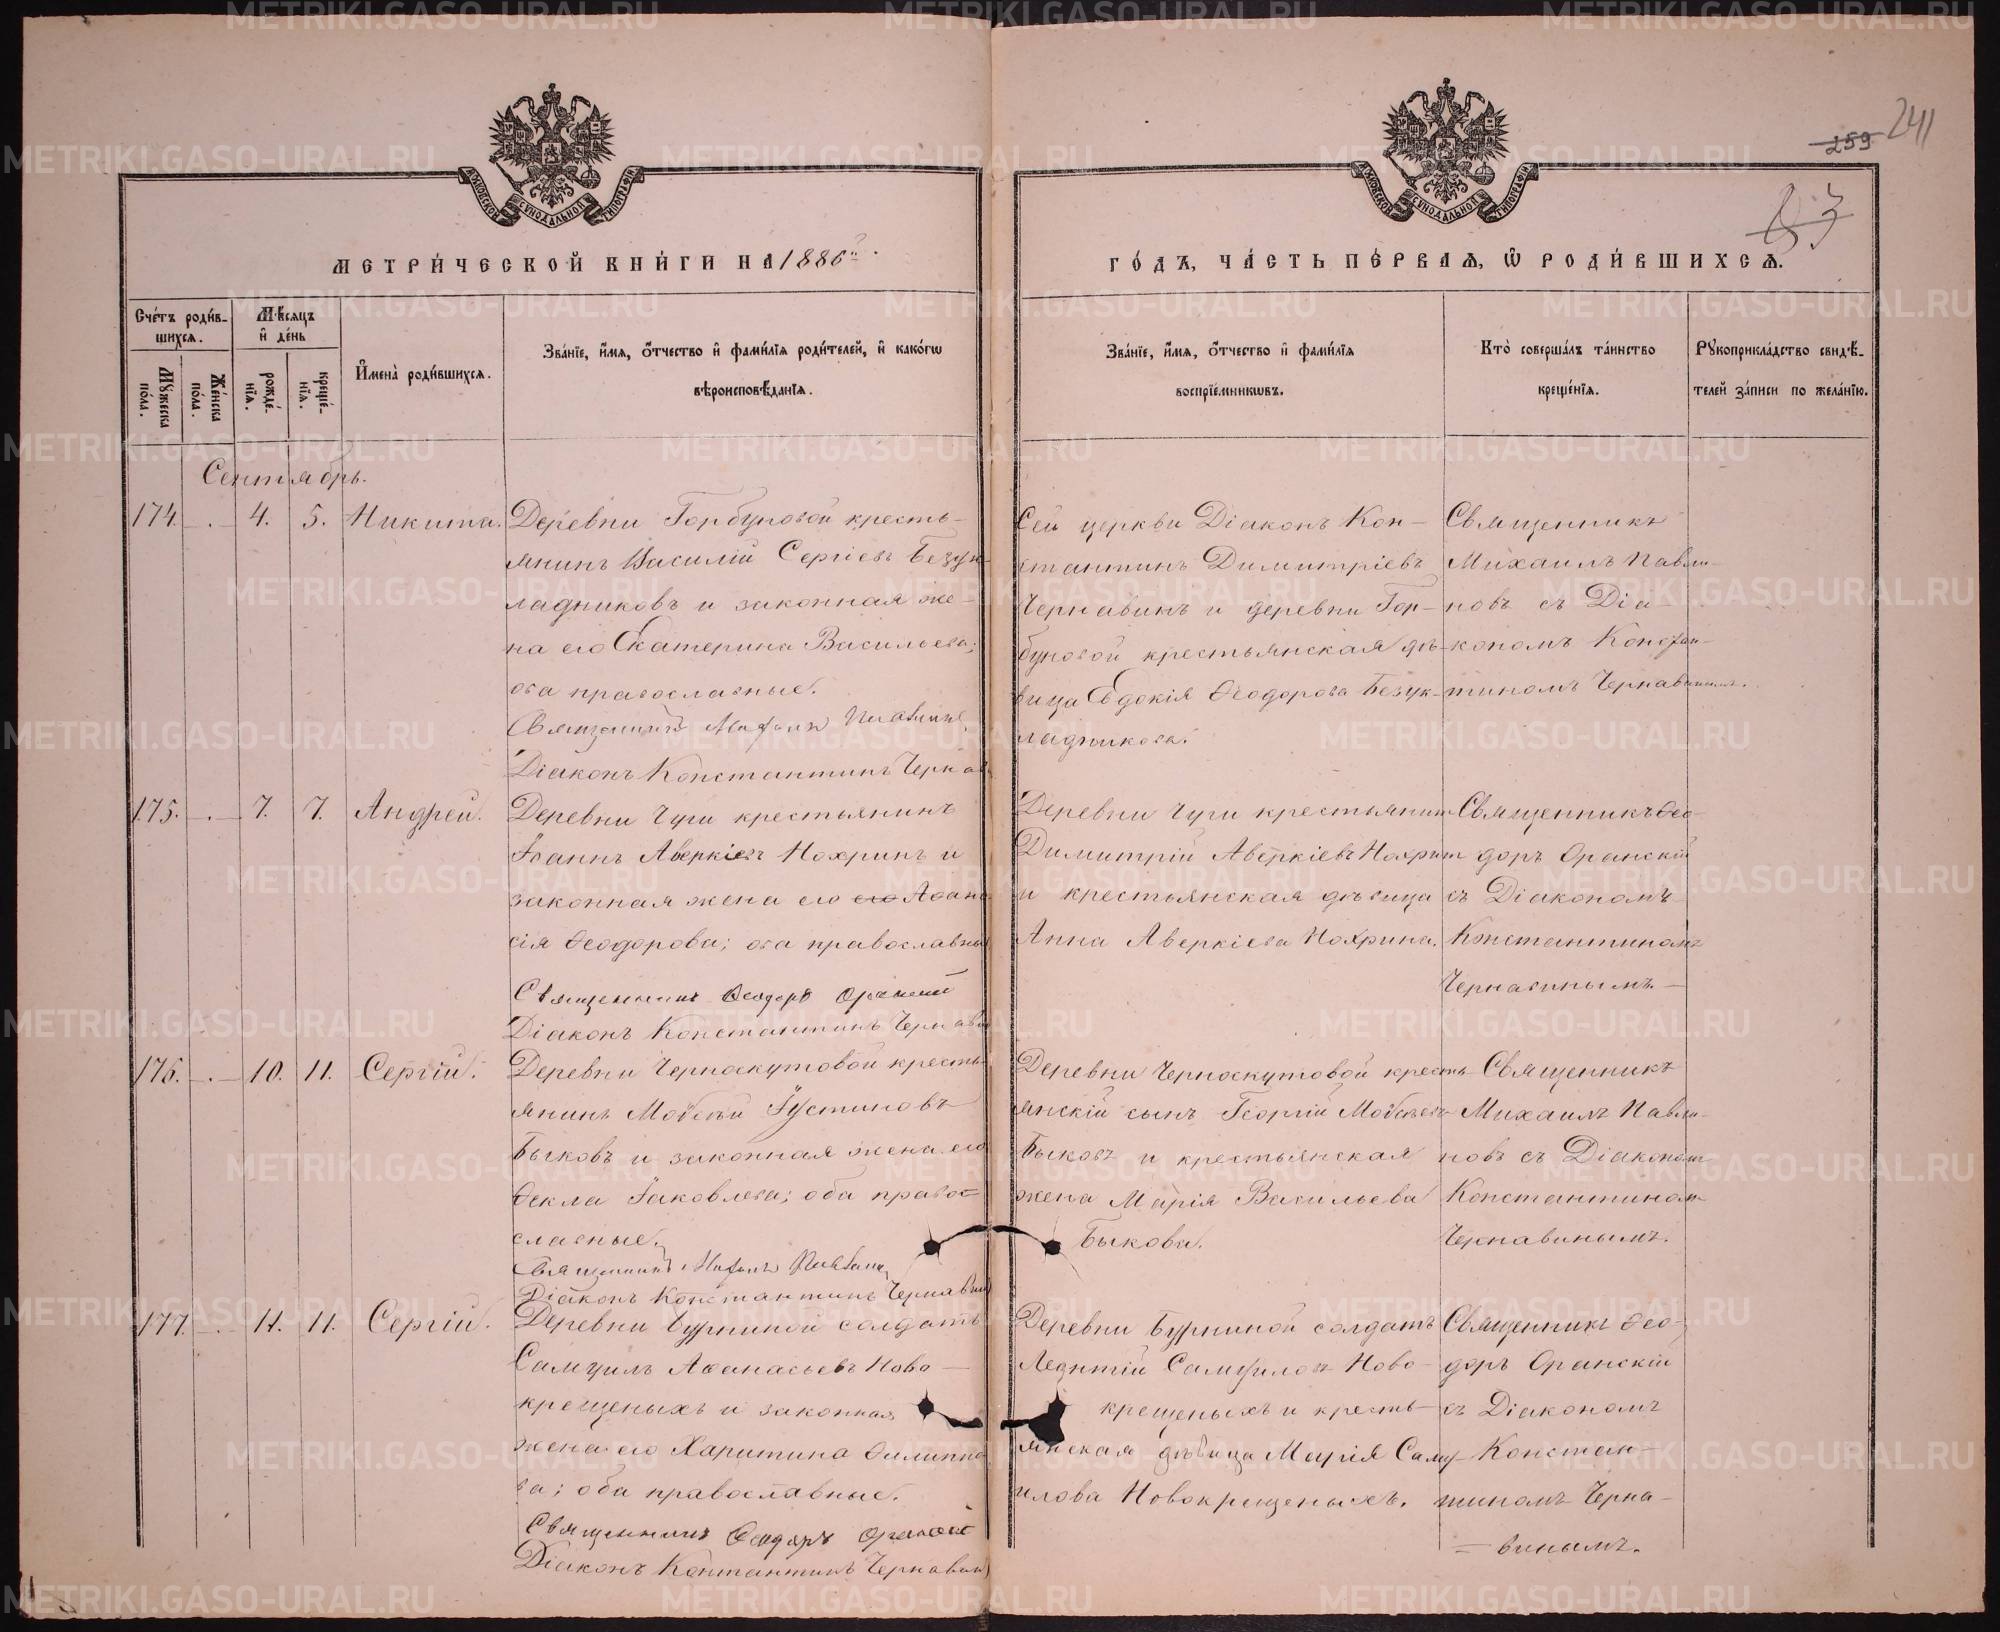 259 241
83
МЕТРИ́ЧЕСКОЙ КНИ́ГИ НА 1886й.
ГО́ДЪ, ЧА́СТЬ ПЕ́РВАЯ, Ѽ РОДИ́ВШИХСЯ.
Сче́тъ роди́в-
шихся.
Мѣ́сяцъ
и҆ де́нь
Мꙋ́жеска
по́ла.
Же́нска
по́ла.
рожде́-
нїѧ.
креще́-
нїѧ.
И҆мена̀ роди́вшихся.
Зва́нїе, и҆́мя, ѻ҆́тчество и҆ фами́лїя роди́телей, и҆ како́гѡ
вѣроисповѣ́данїя.
Зва́нїе, и҆́мя, ѻ҆́тчество и҆ фами́лїя
воспрїе́мникѡвъ.
Кто̀ соверша́лъ та́инство
креще́нїя.
Рꙋкоприкла́дство свидѣ́-
телей за́писи по жела́нїю.
Сентябрь.
174. - . - 4. 5. Никита.
Деревни Горбуновой кресть-
янинъ Василій Сергіевъ Безук-
ладниковъ и законная же-
на его Екатерина Васильева;
оба православные.
Священникъ Михаилъ Павлинъ
Діаконъ Константинъ Чернав
Сей церкви Діаконъ Кон-
стантинъ Димитріевъ
Чернавинъ и деревни Гор-
буновой крестьянская дѣ-
вица Евдокія Ѳеодорова Безук-
ладникова.
Священникъ
Михаилъ Павли-
новъ съ Діа-
кономъ Констан-
тиномъ Чернавинымъ.
175. - . - 7. 7. Андрей.
Деревни Чуги крестьянинъ
Іоаннъ Аверкіевъ Нохринъ и
законная жена его его Аѳана-
сія Ѳеодорова; оба православны
Священникъ Ѳеодоръ Оранскій
Діаконъ Константинъ Чернави
Деревни Чуги крестьянин
Димитрій Аверкіевъ Нохрин
и крестьянская дѣвица
Анна Аверкіева Нохрина.
Священникъ Ѳео-
доръ Оранскій
съ Діакономъ
Константиномъ
Чернавинымъ. -
176. - . - 10. 11. Сергій.
Деревни Черноскутовой кресть-
янинъ Моѵсей Іустиновъ
Быковъ и законная жена его
Ѳекла Іаковлева; оба право-
славные.
Священникъ Михаилъ Павлинъ
Діаконъ Константинъ Чернавин
Деревни Черноскутовой кресть-
янскій сынъ Георгій Моѵсеевъ
Быковъ и крестьянская
жена Марія Васильева
Быкова.
Священникъ
Михаилъ Павли-
новъ съ Діакономъ
Константиномъ
Чернавинымъ.
177. - . - 11. 11. Сергій.
Деревни Бурниной солдатъ
Самуилъ Аѳанасьевъ Ново-
крещеныхъ и законная
жена его Харитина Филиппо
ва; оба православные.
Священникъ Ѳеодоръ Оранскій
Діаконъ Константинъ Чернавин
Деревни Бурниной солдатъ
Леонтій Самуиловъ Ново-
крещеныхъ и кресть-
янская дѣвица Марія Саму-
илова Новокрещеныхъ.
Священникъ Ѳео-
доръ Оранскій
съ Діакономъ
Констан-
тиномъ Черна-
= винымъ.